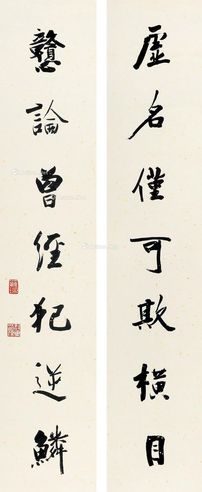 虛名僅可欺橫目
戇論曾經犯逆鱗